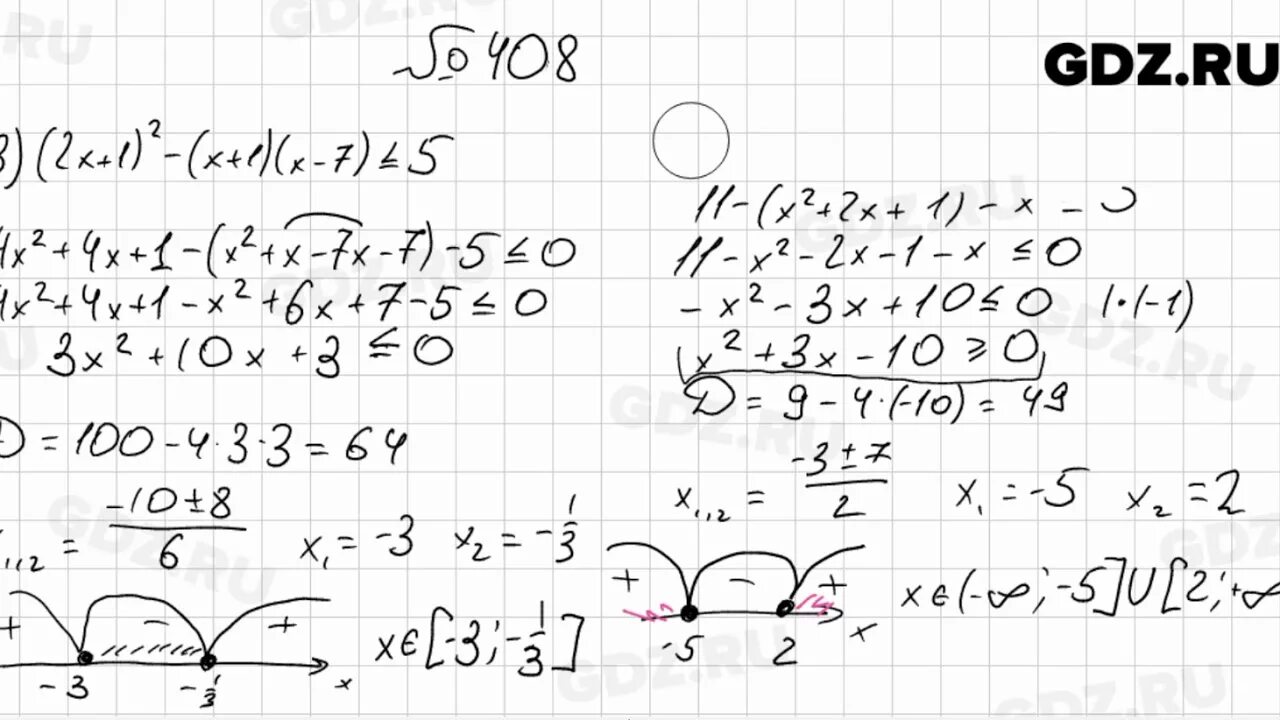 № 408
GDZ.RU
3) (2x+1)² - (x+1)(x-7) ≤ 5
4x² + 4x + 1 - (x² + x - 7x - 7) - 5 ≤ 0
4x² + 4x + 1 - x² + 6x + 7 - 5 ≤ 0
3x² + 10x + 3 ≤ 0
D = 100 - 4·3·3 = 64
x₁,₂ = (-10 ± 8)/6 x₁ = -3 x₂ = -1/3
+ - +
-3 -1/3 x
x ∈ [-3; -1/3]
11 - (x² + 2x + 1) - x
11 - x² - 2x - 1 - x ≤ 0
- x² - 3x + 10 ≤ 0 |·(-1)
x² + 3x - 10 ≥ 0
D = 9 - 4·(-10) = 49
x₁,₂ = (-3 ± 7)/2 x₁ = -5 x₂ = 2
+ - +
-5 2 x
x ∈ (-∞; -5] ∪ [2; +∞